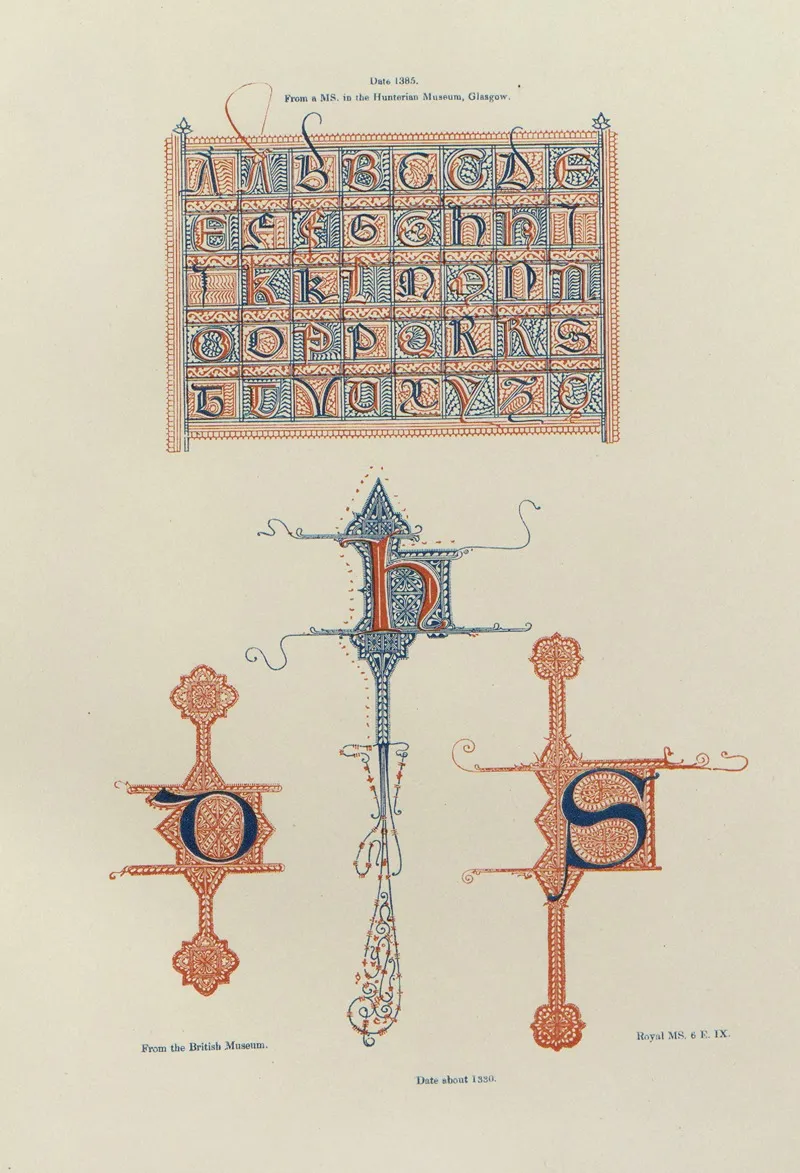 Date 1385.
From a MS. in the Hunterian Museum, Glasgow.
A A B B C C D E
E F F G G h h I
I K K L M M N N
O O P P Q R R S
T T V U X Y Z
h
D
S
From the British Museum.
Royal MS. 6 E. IX.
Date about 1330.